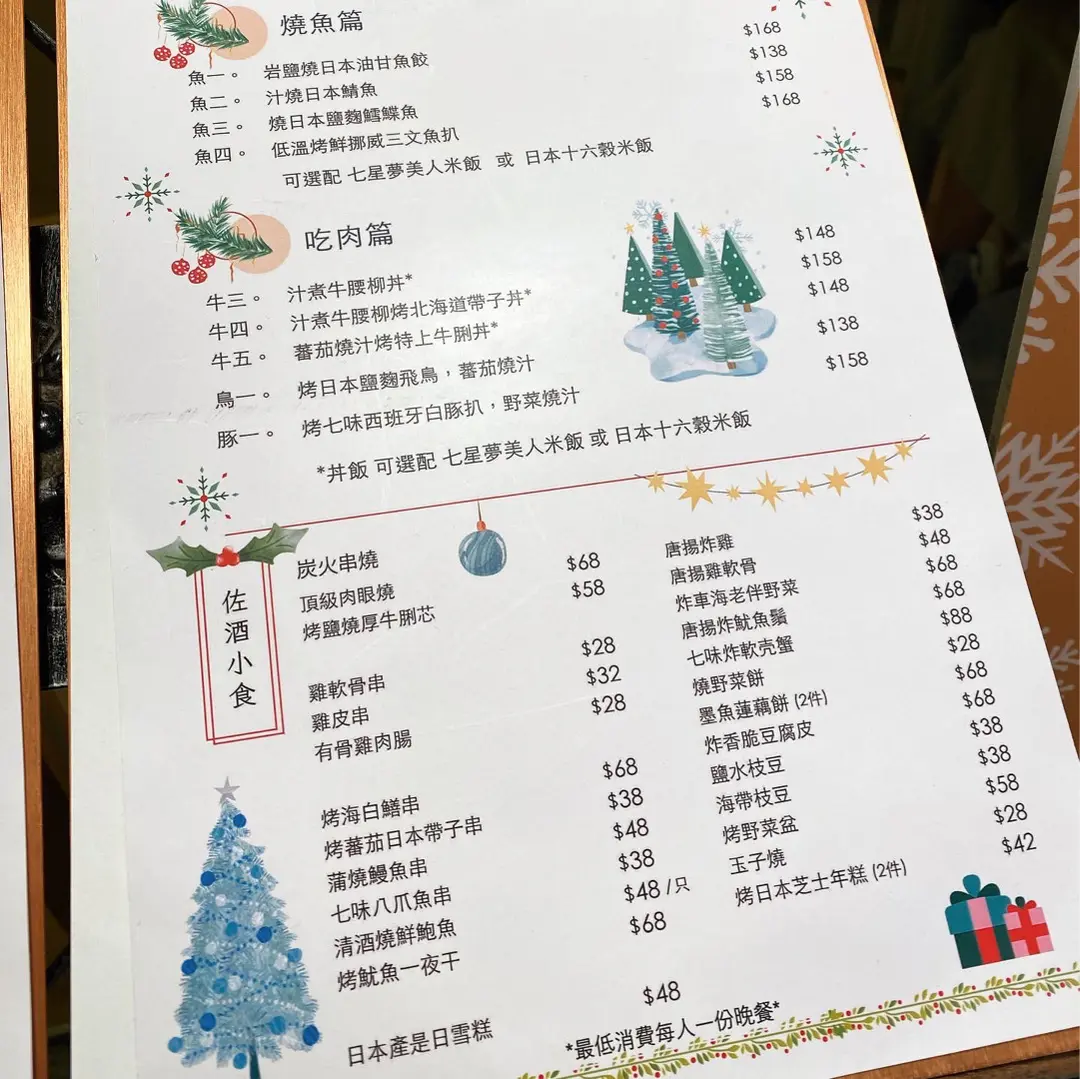 燒魚篇
魚一。 岩鹽燒日本油甘魚餃 $168
魚二。 汁燒日本鯖魚 $138
魚三。 燒日本鹽麴鱈鰈魚 $158
魚四。 低溫烤鮮挪威三文魚扒 $168
可選配 七星夢美人米飯 或 日本十六穀米飯
吃肉篇
牛三。 汁煮牛腰柳丼* $148
牛四。 汁煮牛腰柳烤北海道帶子丼* $158
牛五。 蕃茄燒汁烤特上牛脷丼* $148
鳥一。 烤日本鹽麴飛鳥，蕃茄燒汁 $138
豚一。 烤七味西班牙白豚扒，野菜燒汁 $158
*丼飯 可選配 七星夢美人米飯 或 日本十六穀米飯
佐酒小食
炭火串燒
頂級肉眼燒 $68
烤鹽燒厚牛脷芯 $58
雞軟骨串 $28
雞皮串 $32
有骨雞肉腸 $28
烤海白鱔串 $68
烤蕃茄日本帶子串 $38
蒲燒鰻魚串 $48
七味八爪魚串 $38
清酒燒鮮鮑魚 $48 /只
烤魷魚一夜干 $68
日本產是日雪糕 $48
唐揚炸雞 $38
唐揚雞軟骨 $48
炸車海老伴野菜 $68
唐揚炸魷魚鬚 $68
七味炸軟壳蟹 $88
燒野菜餅 $28
墨魚蓮藕餅 (2件) $68
炸香脆豆腐皮 $68
鹽水枝豆 $38
海帶枝豆 $38
烤野菜盆 $58
玉子燒 $28
烤日本芝士年糕 (2件) $42
*最低消費每人一份晚餐*